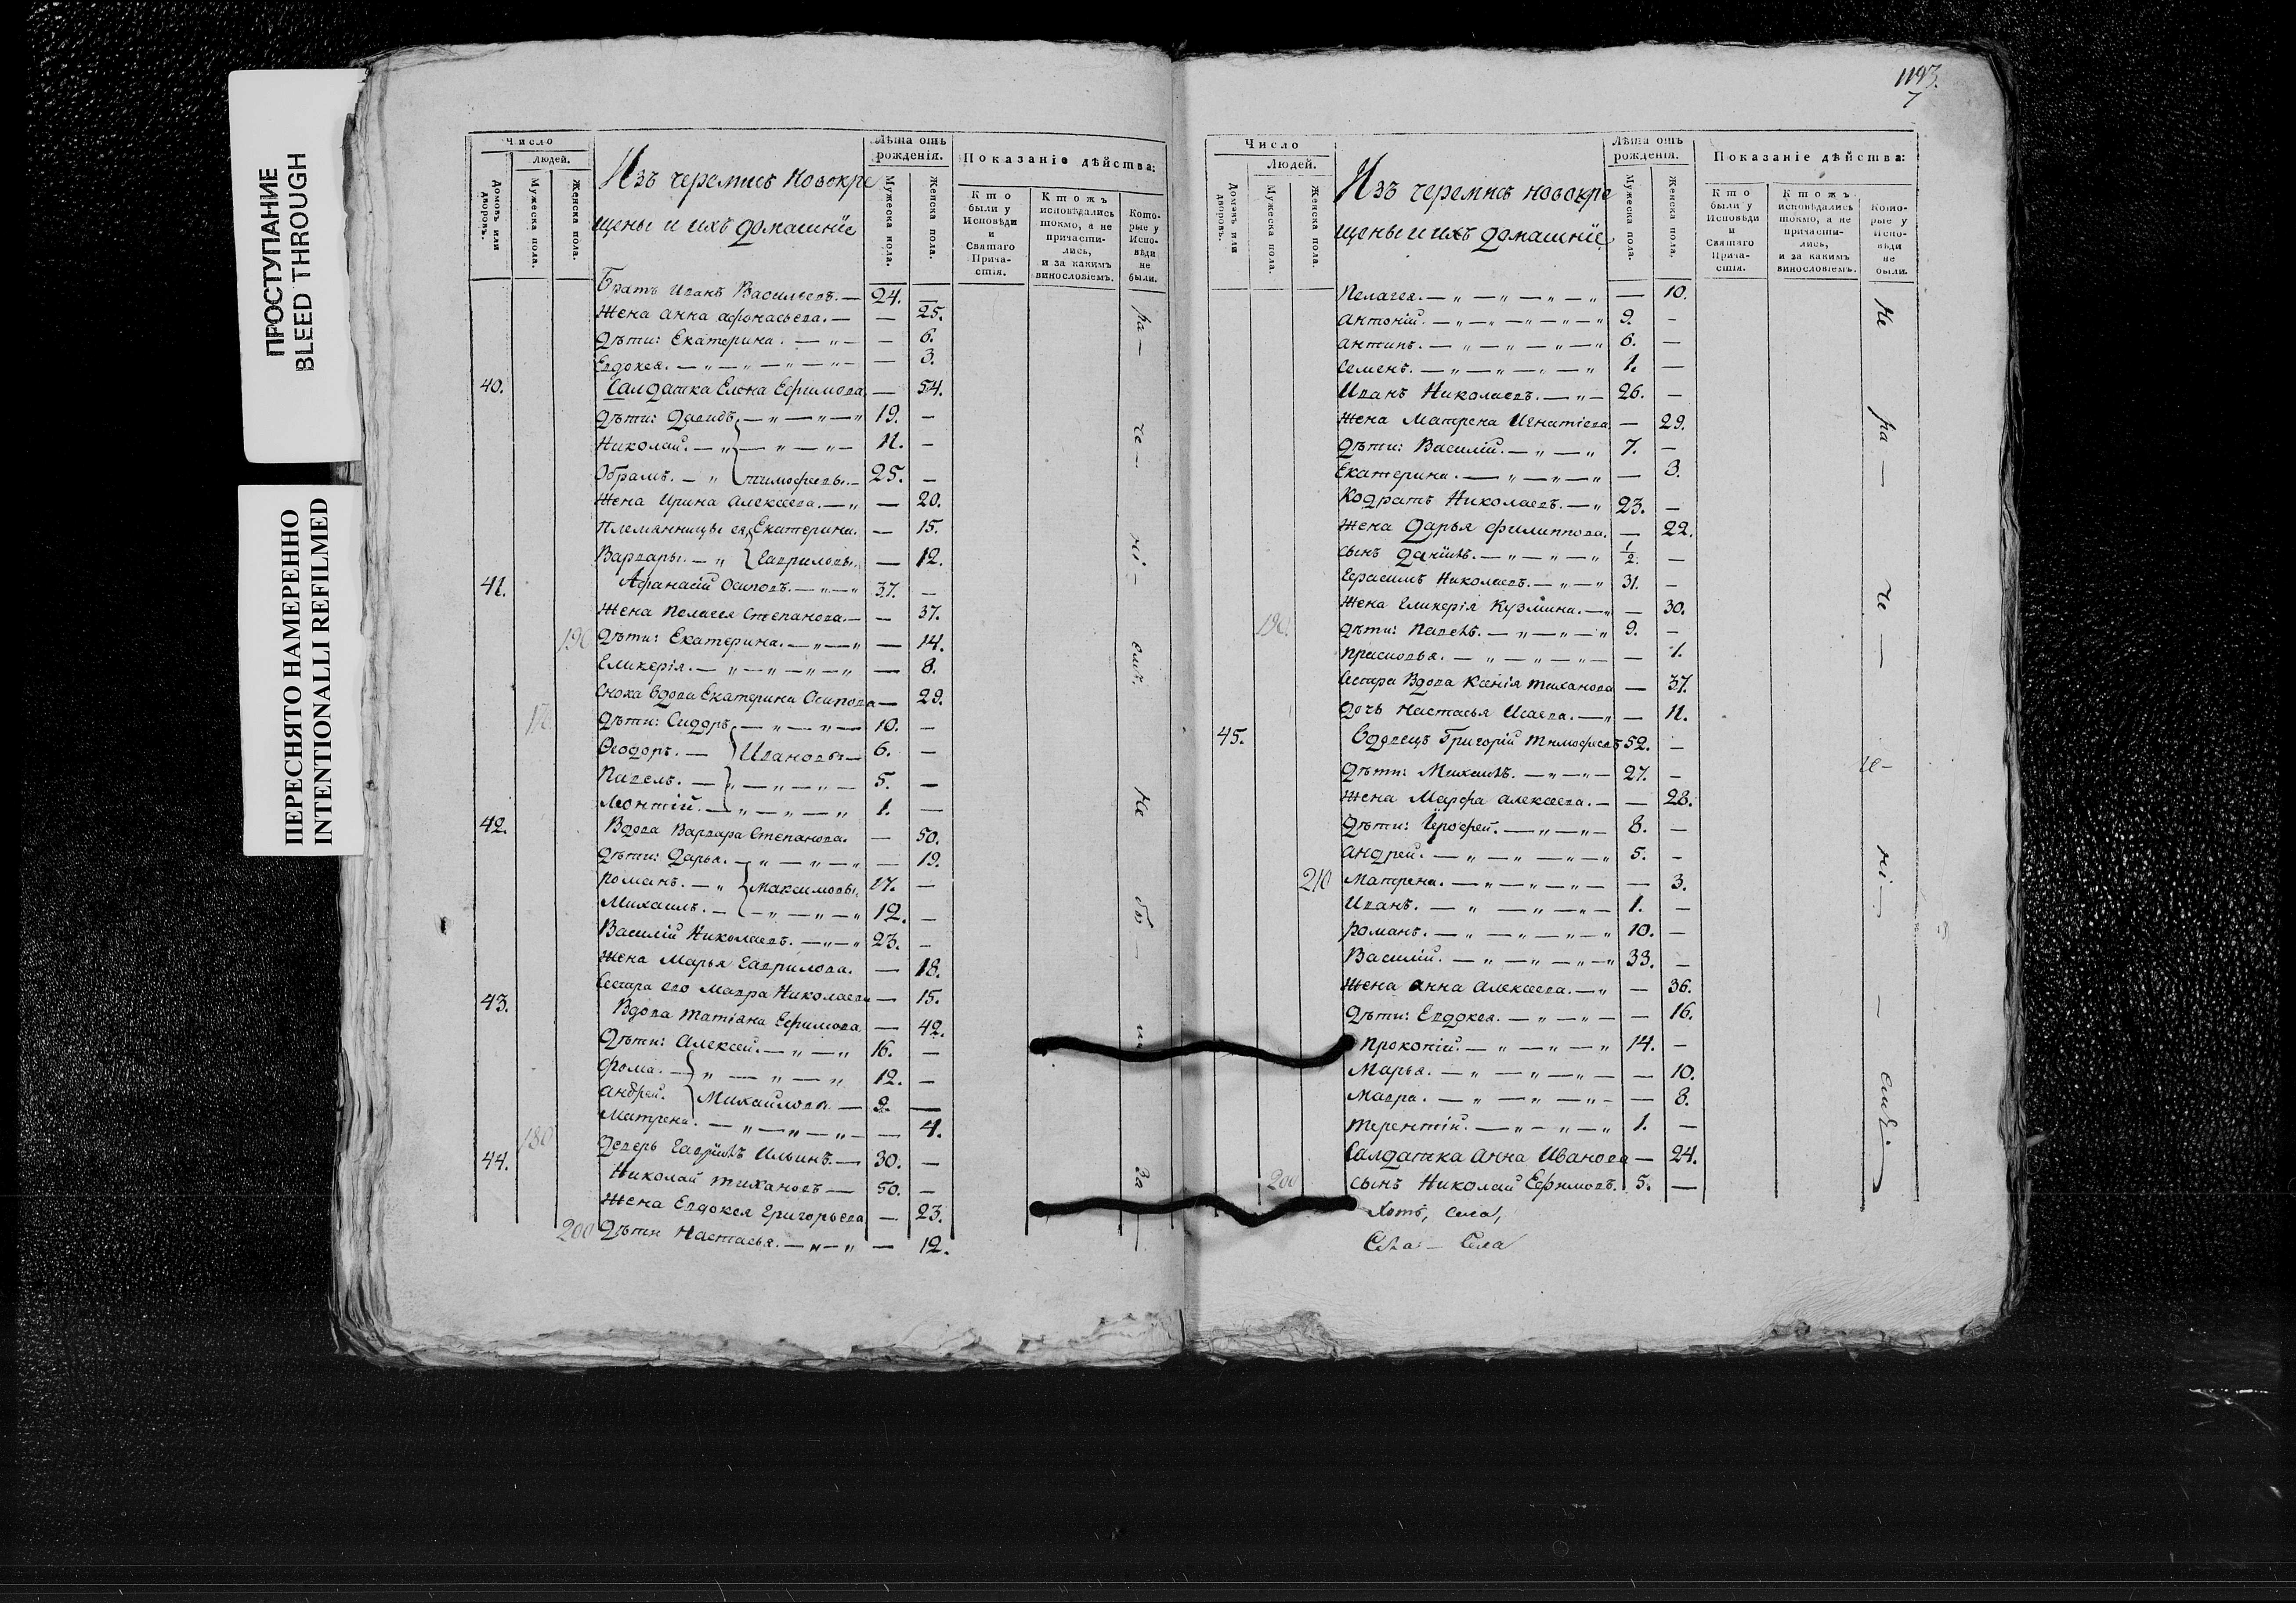 ПРОСТУПАНИЕ
BLEED THROUGH
ПЕРЕСНЯТО НАМЕРЕННО
INTENTIONALLI REFILMED
Число
Людей.
Домовъ или дворовъ.
Мужеска пола.
Женска пола.
Изъ черемисъ новокре
щены и ихъ домашніе
Лѣта отъ рожденія.
Мужеска пола.
Женска пола.
Показаніе дѣйства:
Кто были у Исповѣди и Святаго Прича-стія.
Ктожъ исповѣдались токмо, а не причасти-лись, и за какимъ винословіемъ.
Кото-рые у Испо-вѣди не были.
Братъ Иванъ Васильевъ. — 24. —
Жена Анна Афонасьева. — — 25.
Дѣти: Екатерина. — „ — — 6.
Евдокея. — „ — „ — „ — „ — — 3.
40. Салдатка Елена Ефимова — 54.
Дѣти: Давидъ — „ — „ — „ 19. —
Николай. — „ — „ — „ — 11. —
Обрамъ. — „ Тимофеевы. — 25. —
Жена Ирина Алексеева. — „ — 20.
Племянницы ея Екатерина. — 15.
Варвары. — „ Гавриловы. — 12.
41. Афанасій Осиповъ. — „ — „ 37. —
Жена Пелагея Степанова. — — 37.
190 Дѣти: Екатерина. — „ — „ — 14.
Гликерія. — „ — „ — „ — „ — 8.
Сноха вдова Екатерина Осипова — 29.
170 Дѣти: Сидоръ — „ — „ — 10. —
Ѳеодоръ. — Ивановы — 6. —
Павелъ. — „ — „ — „ — 5. —
Леонтій. — „ — „ — „ 1. —
42. Вдова Варвара Степанова. — 50.
Дѣти: Дарья. — „ — „ — „ — 19.
Романъ. — „ Максимовы. 17. —
Михаилъ. — „ — „ — „ 12. —
Василій Николаевъ. — „ — „ 23. —
Жена Марья Гаврилова. — 18.
Сестра его Мавра Николаева — 15.
43. Вдова Татіана Ефимова — 42.
Дѣти: Алексей. — „ — „ 16. —
Фома. — „ — „ — „ 12. —
Андрей. Михайловы — 9. —
Матрена. — „ — „ — „ — — 4.
180 Деверь Гавріилъ Ильинъ. — 30. —
44. Николай Тихановъ — 50. —
Жена Евдокея Григорьева — 23.
200 Дѣти Настасья. — „ — „ — 12.
ра —
че —
ні —
емъ.
Не
бы —
за
1193.
7
Число
Людей.
Домовъ или дворовъ.
Мужеска пола.
Женска пола.
Изъ черемисъ новокре
щены и ихъ домашніе
Лѣта отъ рожденія.
Мужеска пола.
Женска пола.
Показаніе дѣйства:
Кто были у Исповѣди и Святаго Прича-стія.
Ктожъ исповѣдались токмо, а не причасти-лись, и за какимъ винословіемъ.
Кото-рые у Испо-вѣди не были.
Пелагея. — „ — „ — „ — „ — 10.
Антоній. — „ — „ — „ — „ 9. —
Антипъ. — „ — „ — „ — „ 6. —
Семенъ. — „ — „ — „ — „ 1. —
Иванъ Николаевъ. — „ — 26. —
Жена Матрена Игнатіева — 29.
Дѣти: Василій. — „ — „ — 7. —
Екатерина. — „ — „ — „ — 3.
Кодратъ Николаевъ. — „ 23. —
Жена Дарья Филиппова. — 22.
Сынъ Даніилъ. — „ — „ — „ 1/2. —
Герасимъ Николаевъ. — „ — „ 31. —
Жена Гликерія Кузмина. — „ — 30.
190. Дѣти: Павелъ. — „ — „ — „ 9. —
Прасковья. — „ — „ — „ — — 1.
Сестра Вдова Ксенія Тиханова — 37.
Дочь Настасья Исаева. — „ — 11.
45. Вдовецъ Григорій Тимофеевъ 52. —
Дѣти: Михаилъ. — „ — „ — 27. —
Жена Марфа Алексеева. — — 28.
Дѣти: Ерофей. — „ — „ — 8. —
Андрей. — „ — „ — „ — „ 5. —
210 Матрена. — „ — „ — „ — — 3.
Иванъ. — „ — „ — „ — 1. —
Романъ. — „ — „ — „ — „ 10. —
Василій. — „ — „ — „ — „ 33. —
Жена Анна Алексеева. — „ — 36.
Дѣти: Евдокея. — „ — „ — — 16.
Прокопій. — „ — „ — „ 14. —
Марья. — „ — „ — „ — — 10.
Мавра. — „ — „ — „ — — 8.
Терентій. — „ — „ — „ 1. —
Салдатка Анна Иванова — 24.
200 Сынъ Николай Ефимовъ. 5. —
Не
ра —
че —
ні —
емъ.